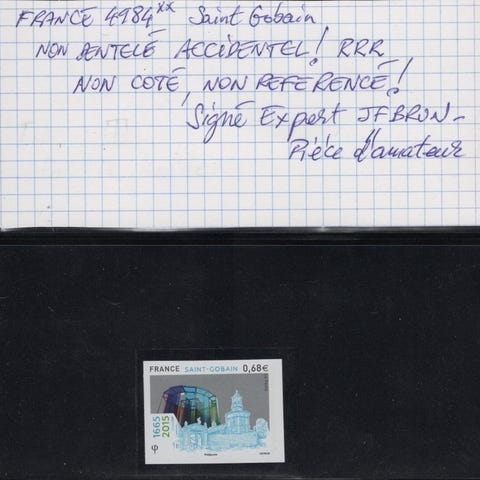 FRANCE 4984xx Saint Gobain
NON DENTELÉ ACCIDENTEL! RRR
NON COTÉ, NON REFERENCÉ!
Signé Expert JF BRUN -
Pièce d'amateur
FRANCE SAINT-GOBAIN 0,68€
1665
2015